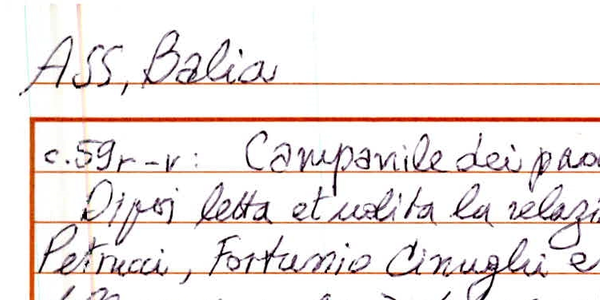 ASS, Balia
c. 59r-v: Campanile dei
Dipoi letta et udita la
Petrucci, Fortunio Cinughi e